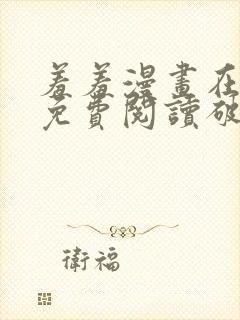 羞羞漫畫在
免費閱讀破
衛福